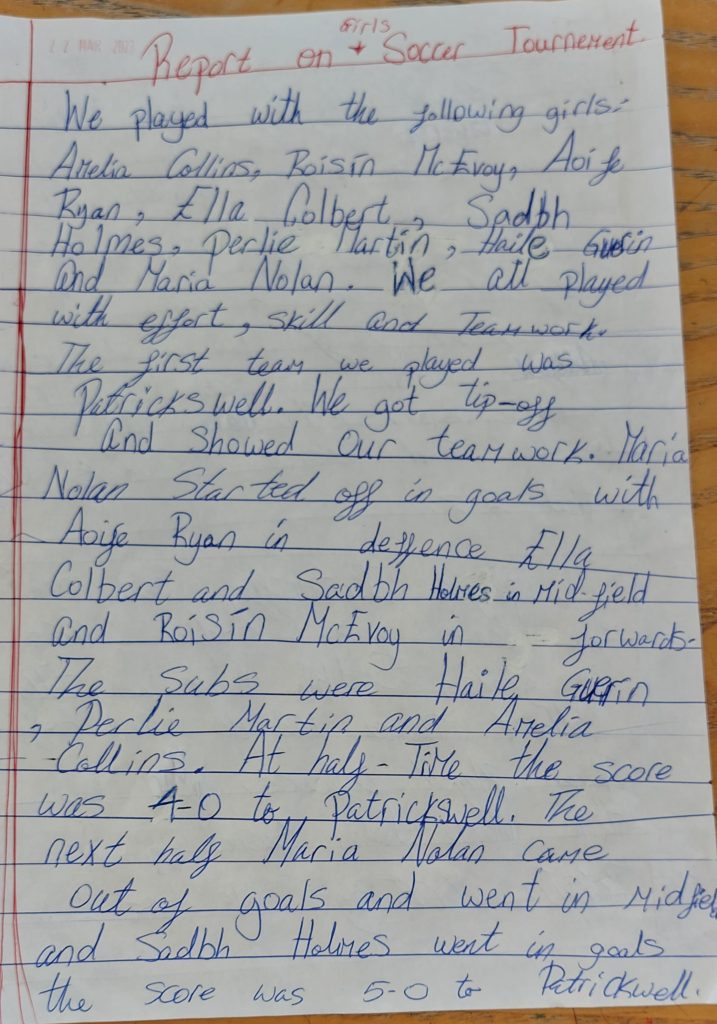 22 MAR 2023
Report on Girls Soccer Tournement
We played with the following girls:-
Amelia Collins, Roisín McEvoy, Aoife
Ryan, Ella Colbert, Sadbh
Holmes, Perlie Martin, Haile Guerin
and Maria Nolan. We all played
with effort, skill and Teamwork.
The first team we played was
Patrickswell. We got tip-off
and showed our teamwork. Maria
Nolan Started off in goals with
Aoife Ryan in deffence Ella
Colbert and Sadbh Holmes in Mid-field
and Roisín McEvoy in forwards.
The subs were Haile Guerin
, Perlie Martin and Amelia
Collins. At half-Time the score
was 4-0 to Patrickswell. The
next half Maria Nolan came
out of goals and went in Midfield
and Sadbh Holmes went in goals
the score was 5-0 to Patrickwell.